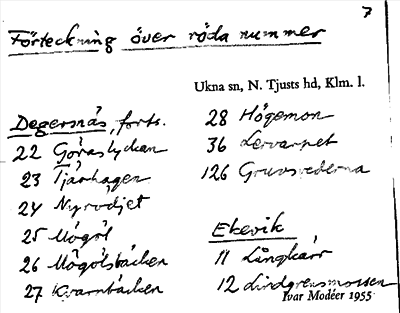 7
Förteckning över röda nummer
Ukna sn, N. Tjusts hd, Klm. l.
Degersnäs, forts.
22 Göraslyckan
23 Tjärhagen
24 Nyrödjet
25 Mögöl
26 Mögölsbäcken
27 Kvarnbäcken
28 Högemon
36 Lervarpet
126 Gruvsvederna
Ekevik
11 Långkärr
12 Lindgrensmossen
Ivar Modéer 1955